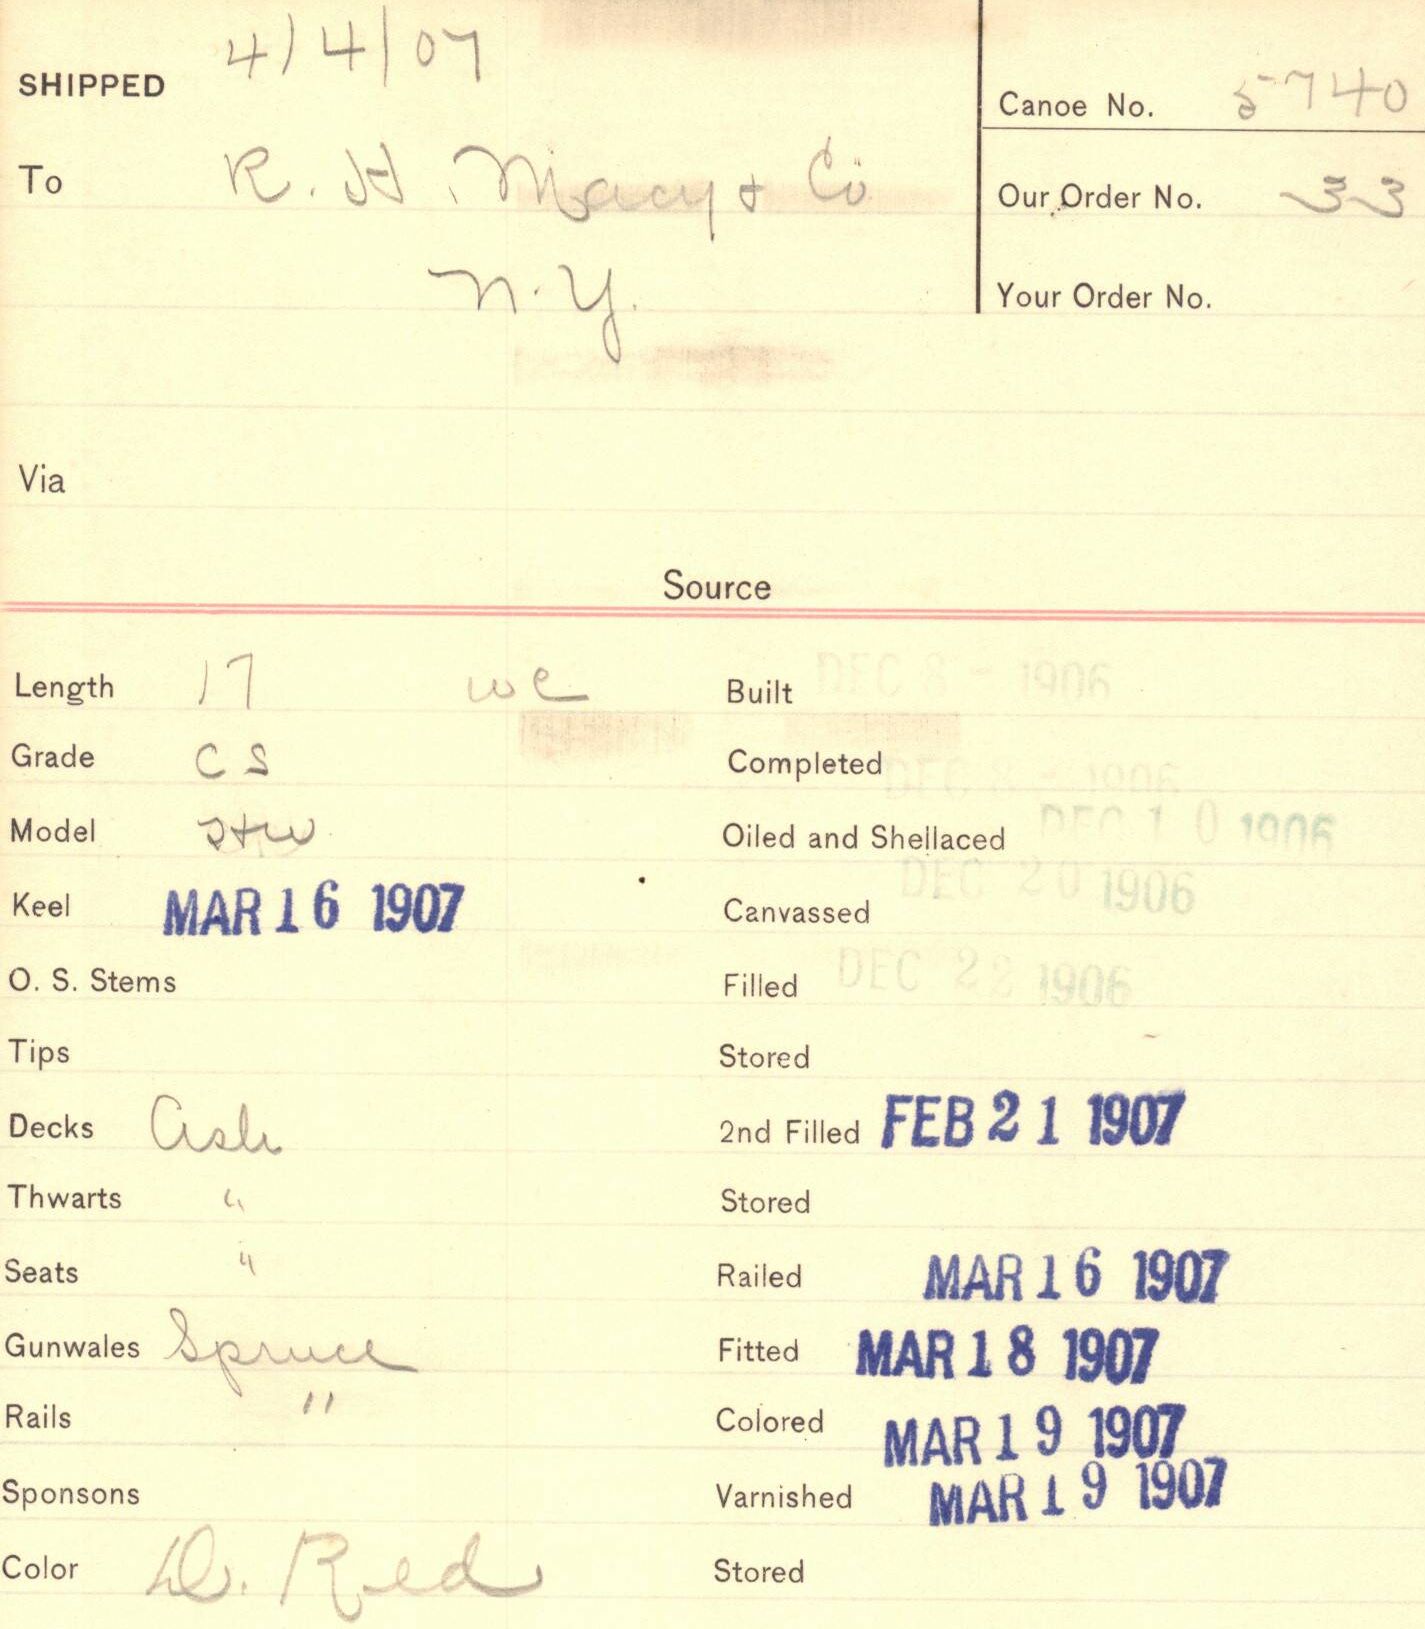 SHIPPED 4/4/07
Canoe No. 5740
To R. H. Macy & Co
Our Order No. 33
N. Y.
Your Order No.
Via
Source
Length 17 WC
Built DEC 8 - 1906
Grade CS
Completed DEC 8 - 1906
Model
Oiled and Shellaced DEC 10 1906
Keel MAR 16 1907
Canvassed DEC 20 1906
O. S. Stems
Filled DEC 22 1906
Tips
Stored
Decks Ash
2nd Filled FEB 21 1907
Thwarts "
Stored
Seats "
Railed MAR 16 1907
Gunwales Spruce
Fitted MAR 18 1907
Rails "
Colored MAR 19 1907
Sponsons
Varnished MAR 19 1907
Color D. Red
Stored